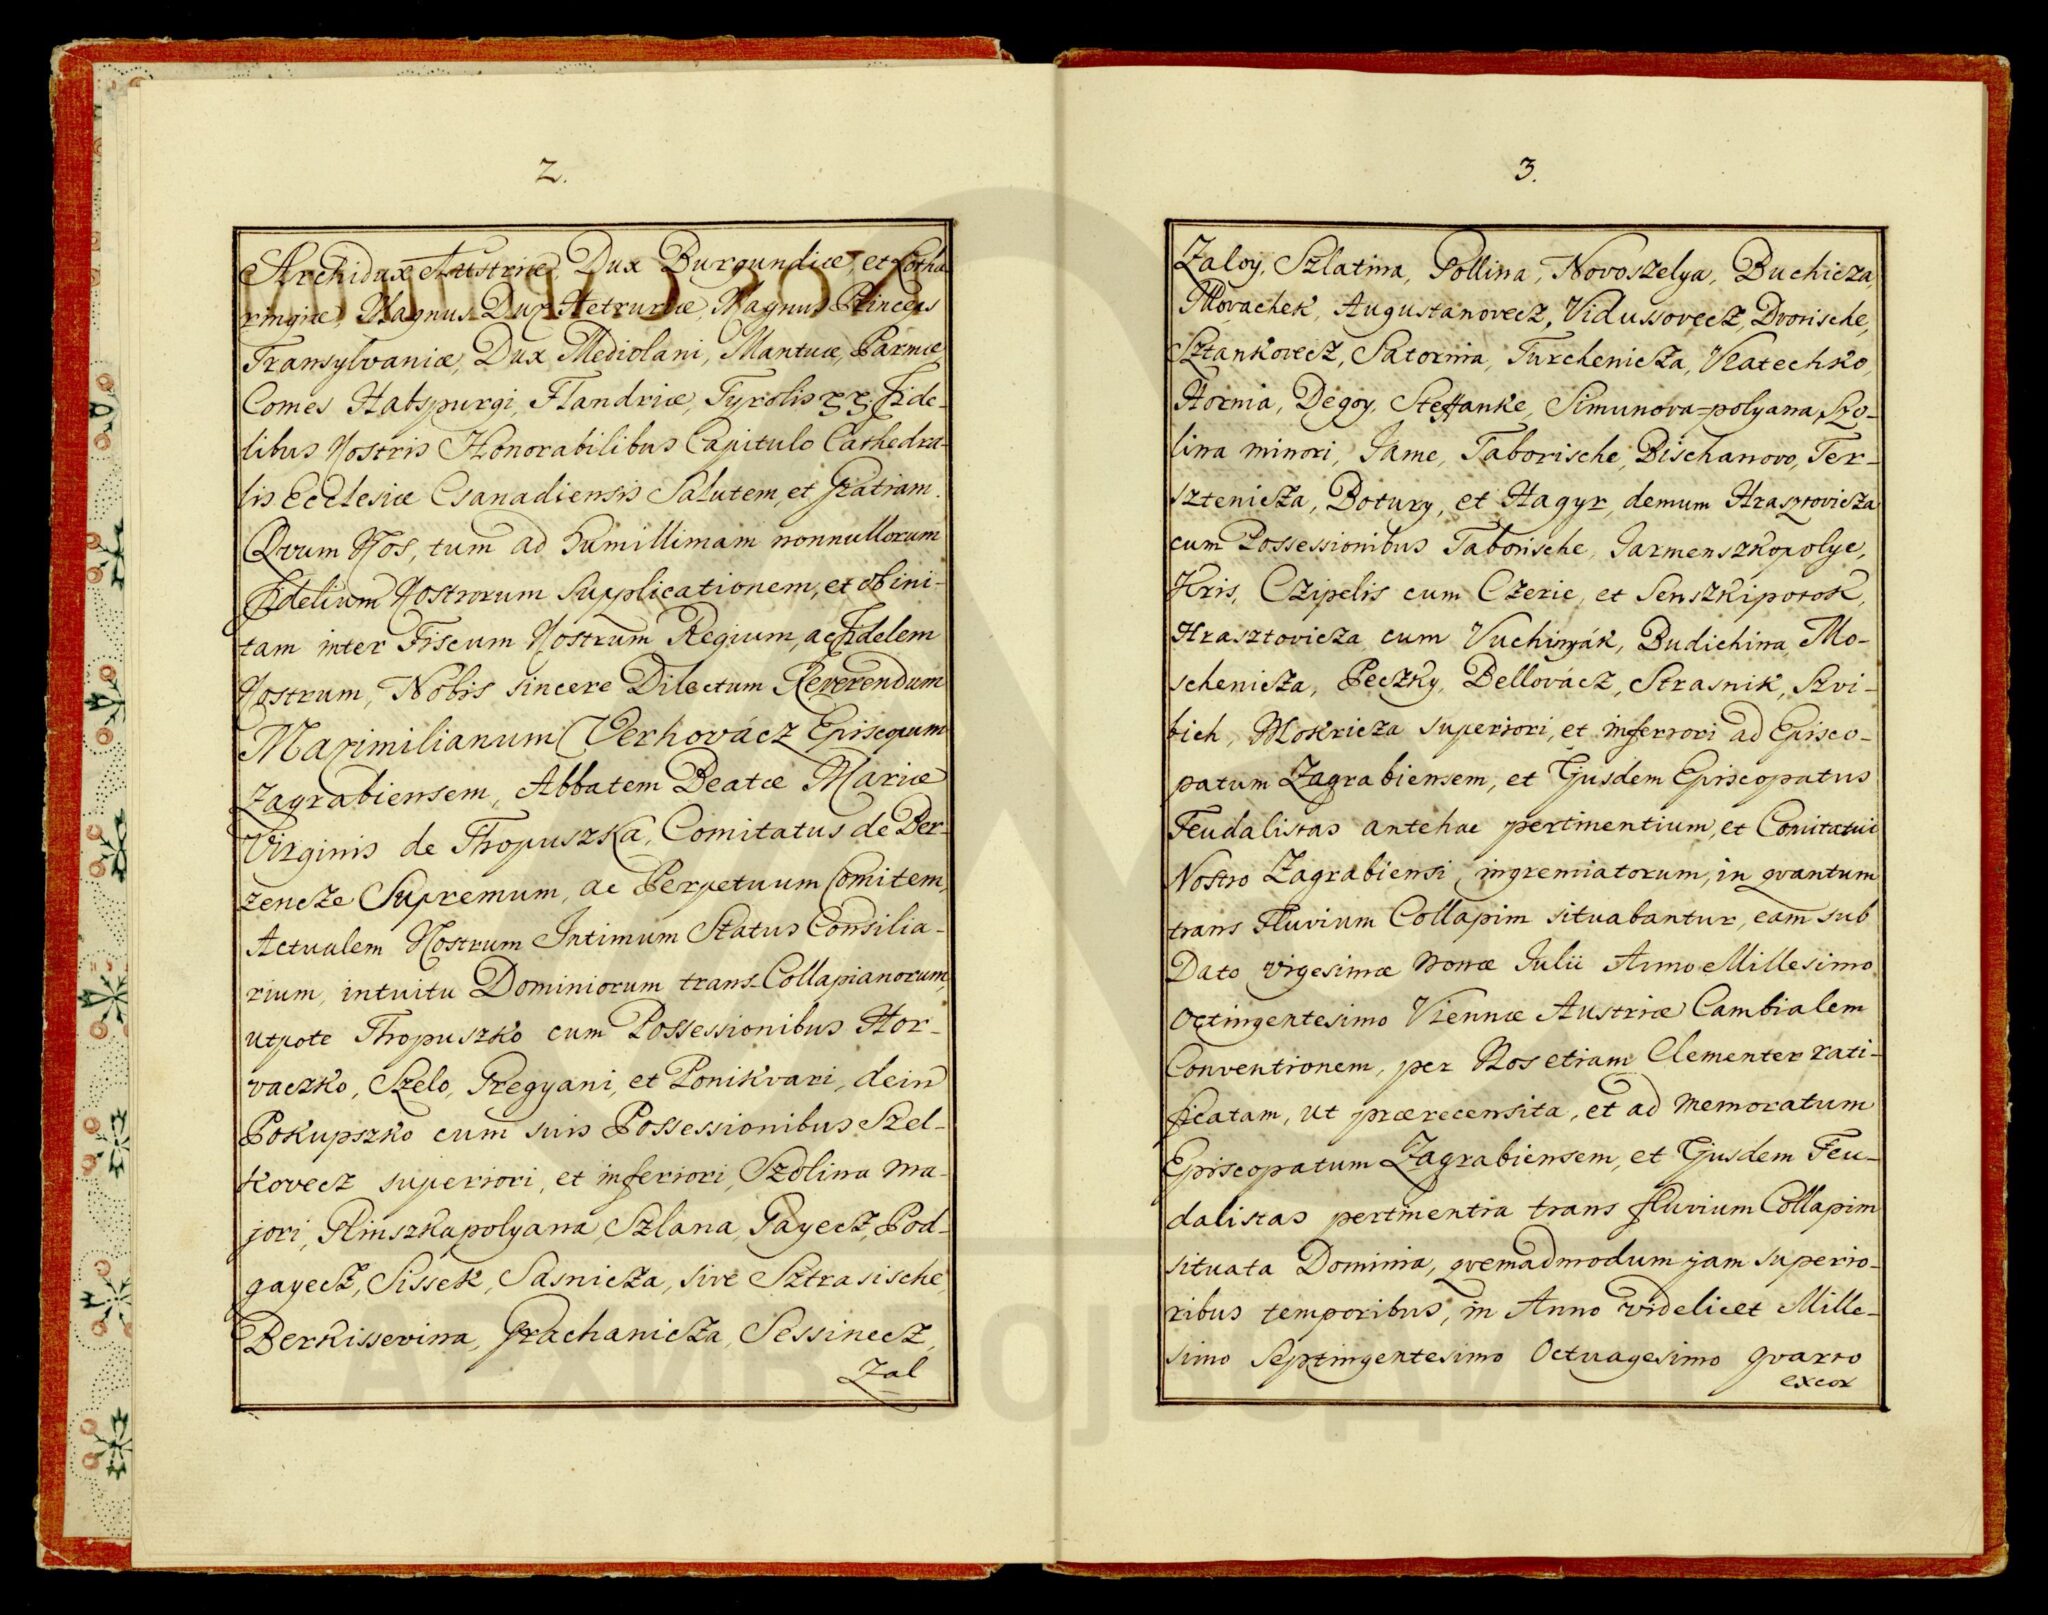 2.
Archidux Austriæ, Dux Burgundiæ, et Lotha
ringiæ, Magnus Dux Hetruriæ, Magnus Princeps
Transylvaniæ, Dux Mediolani, Mantuæ, Parmæ
Comes Habspurgi, Flandriæ, Tyrolis Fide-
libus Nostris Honorabilibus Capitulo Cathedra-
lis Ecclesiæ Csanadiensis Salutem, et Gratiam.
Qvum Nos, tum ad humillimam nonnullorum
Fidelium Nostrorum Supplicationem, et ob ini-
tam inter Fiscum Nostrum Regium, ac Fidelem
Nostrum, Nobis sincere Dilectum Reverendum
Maximilianum Verhovácz Episcopum
Zagrabiensem, Abbatem Beatæ Mariæ
Virginis de Thopuszka, Comitatus de Ber-
zencze Supremum, ac Perpetuum Comitem,
Actualem Nostrum Intimum Status Consilia-
rium, intuitu Dominiorum trans-Collapianorum,
utpote Thopuszko cum Possessionibus Hor-
vaczko, Szelo, Gregyani, et Ponikvari, dein
Pokupszko cum suis Possessionibus Szel-
kovecz superiori, et inferiori, Szolina ma-
jori, Hinszkapolyana, Szlana, Gayecz, Pod-
gayecz, Sissek, Sasnicza, sive Sztrasische,
Berkissevina, Grachanicza, Sessinecz,
Zal
3.
Zaloy, Szlatina, Pollina, Novoszelya, Buchicza,
Movachek, Augustanovecz, Vidussovecz, Dvorische,
Sztankovecz, Satornia, Turchenicza, Vlatechko,
Hornia, Degoy, Steffanke, Simunova-polyana, Szo-
lina minori, Jame, Taborische, Bischanovo, Ter-
sztenicza, Botury, et Hagyr, demum Hrasztovicza
cum Possessionibus Taborische, Jarmenszkopolye,
Kris, Czipelis cum Czerie, et Senszkipotok,
Hrasztovicza cum Vuchinyák, Budichina, Mo-
schenicza, Peczky, Bellovácz, Strasnik, Szvi-
bich, Mokricza superiori, et inferiori ad Episco-
patum Zagrabiensem, et Ejusdem Episcopatus
Feudalistas antehac pertinentium, et Comitatui
Nostro Zagrabiensi ingremiatorum, in qvantum
trans Fluvium Collapim situabantur, eam sub
Dato vigesimæ nonæ Julii Anno Millesimo
Octingentesimo Viennæ Austriæ Cambialem
Conventionem, per Nos etiam Clementer rati-
ficatam, ut præerecensita, et ad memoratum
Episcopatum Zagrabiensem, et Ejusdem Feu-
dalistas pertinentia trans fluvium Collapim
situata Dominia, qvemadmodum jam superio-
ribus temporibus, in Anno videlicet Mille-
simo Septingentesimo Octuagesimo qvarto
excor